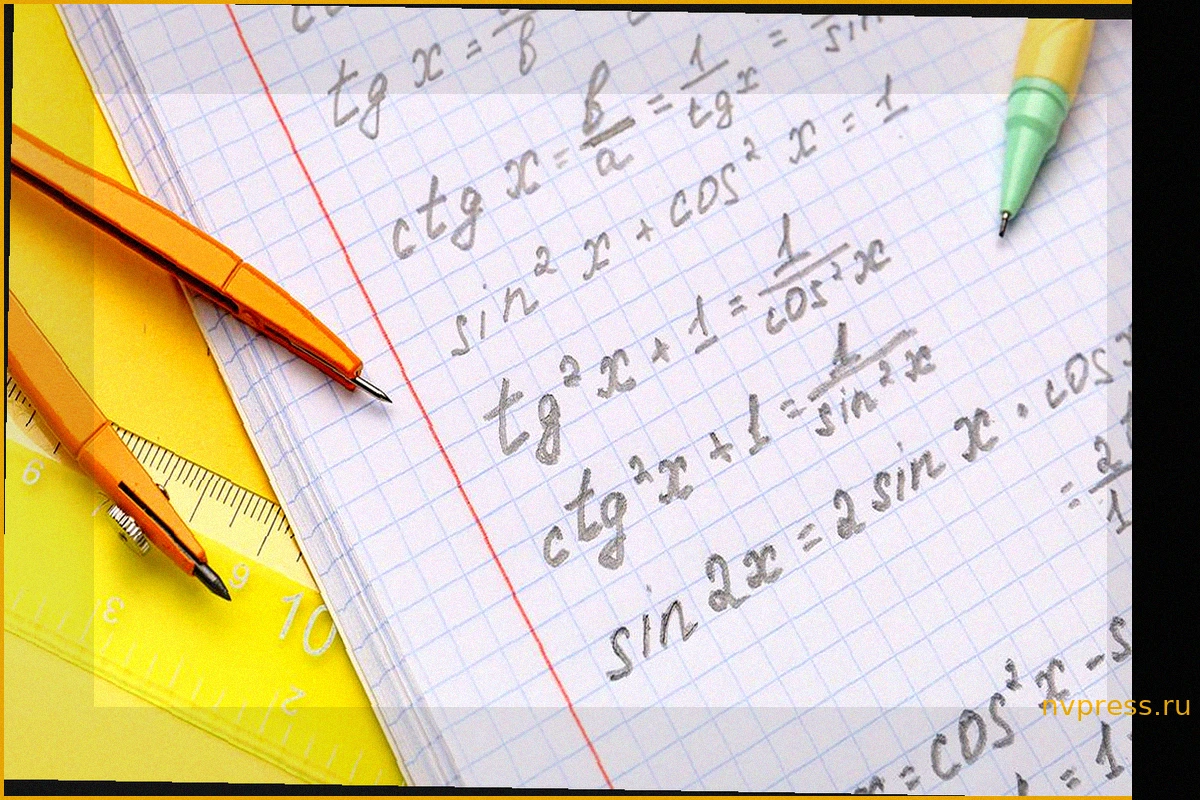 tg x = a/b
ctg x = b/a = 1/tg x
sin² x + cos² x = 1
tg² x + 1 = 1/cos² x
ctg² x + 1 = 1/sin² x
sin 2x = 2 sin x · cos x
= cos² x -
= 1
9
9 10
3
2
nvpress.ru